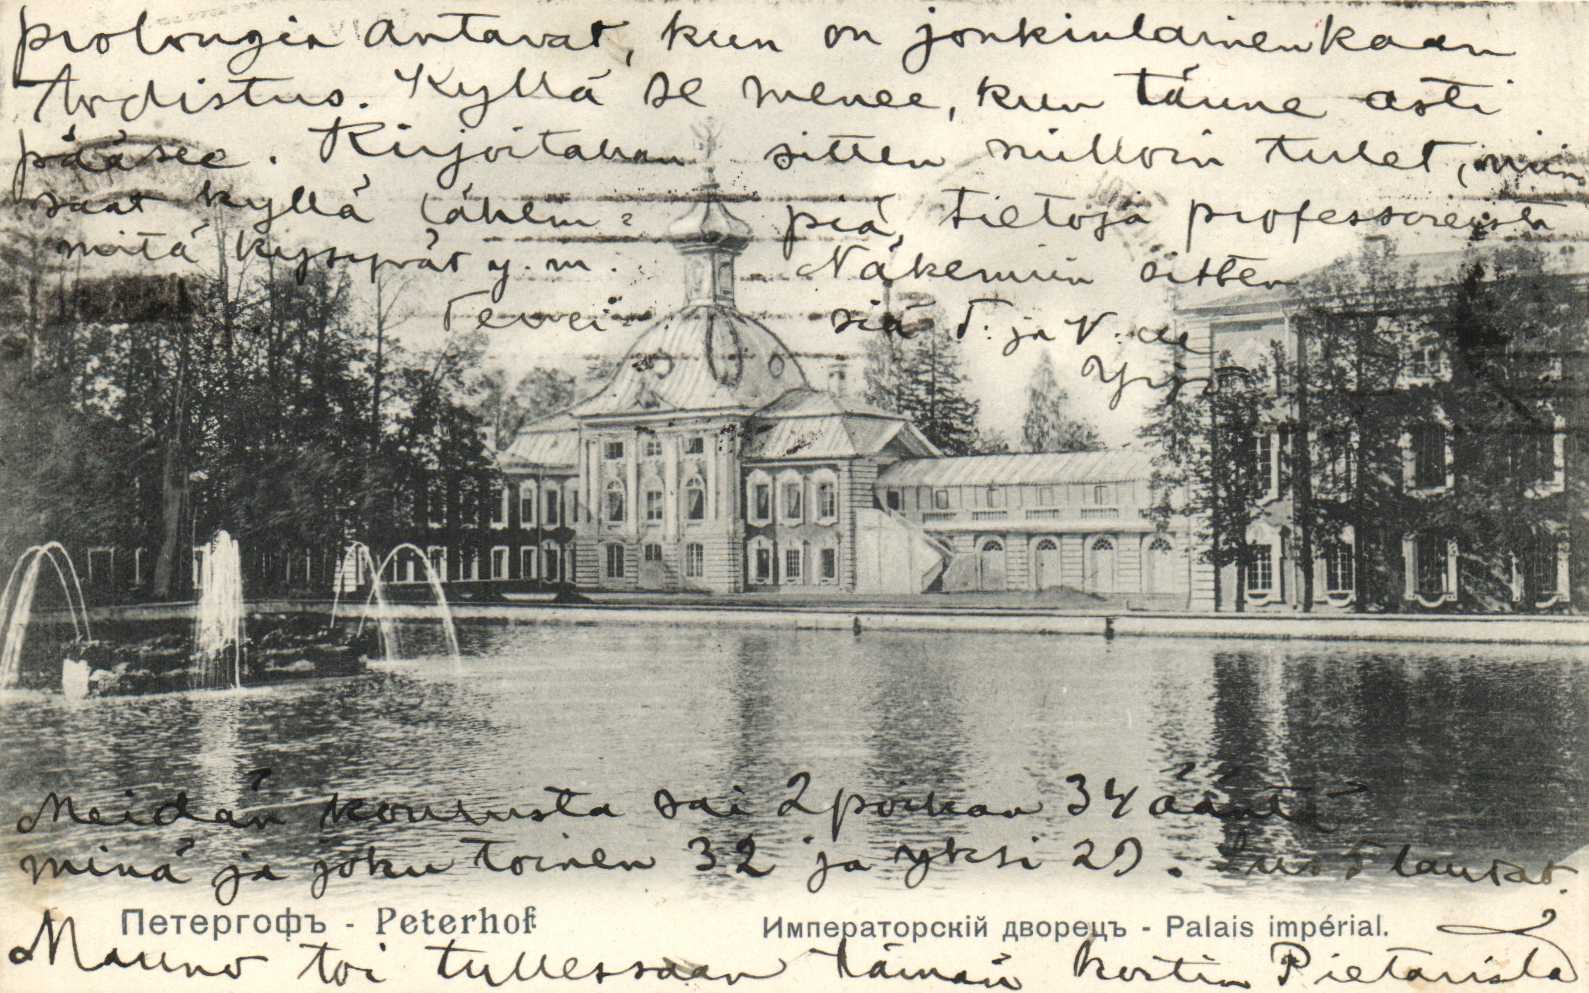 prolongin antavat, kun on jonkinlainenkaan
todistus. Kyllä se menee, kun tänne asti
pääsee. Kirjoitahan sitten milloin tulet, niin
saat kyllä lähem= piä tietoja professoreista
mitä kysyvät y. m. Näkemiin sitten
Tervei= siä T: ja V:lle
Yrjö
Meidän koulusta sai 2 poikaa 34 ääntä
minä ja joku toinen 32 ja yksi 29.
Петергофъ - Peterhof
Императорскій дворецъ - Palais impérial.
Mauno toi tullessaan tämän kortin Pietarista